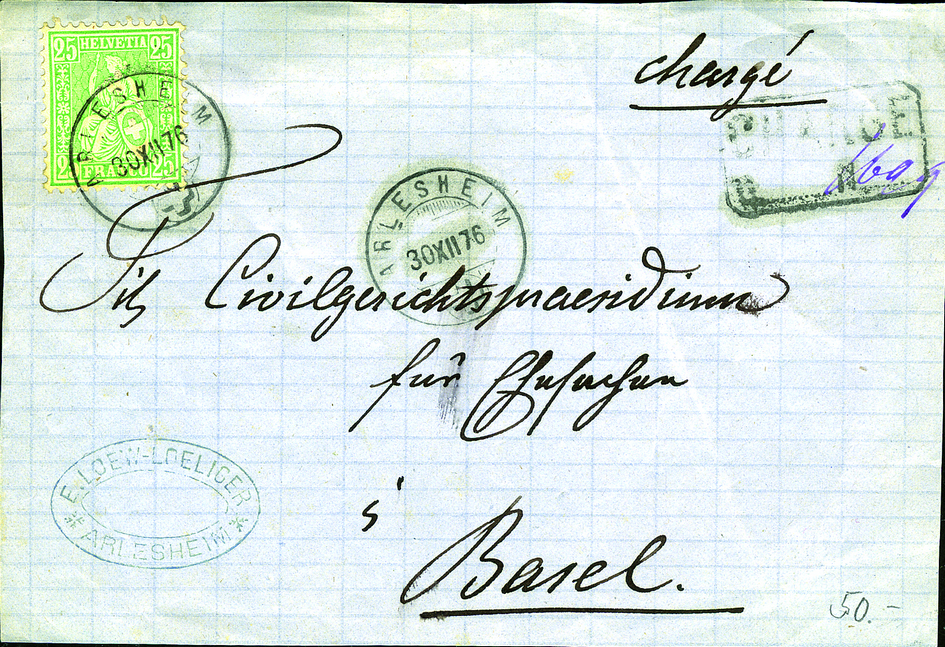 25 HELVETIA 25
FRANCO 25
ARLESHEIM
30XII76
chargé
CHARGÉ
ARLESHEIM
30XII76
Tit. Civilgerichtspraesidium
für Ehesachen
in
Basel.
E. LOEW-LOELIGER
ARLESHEIM
50.-